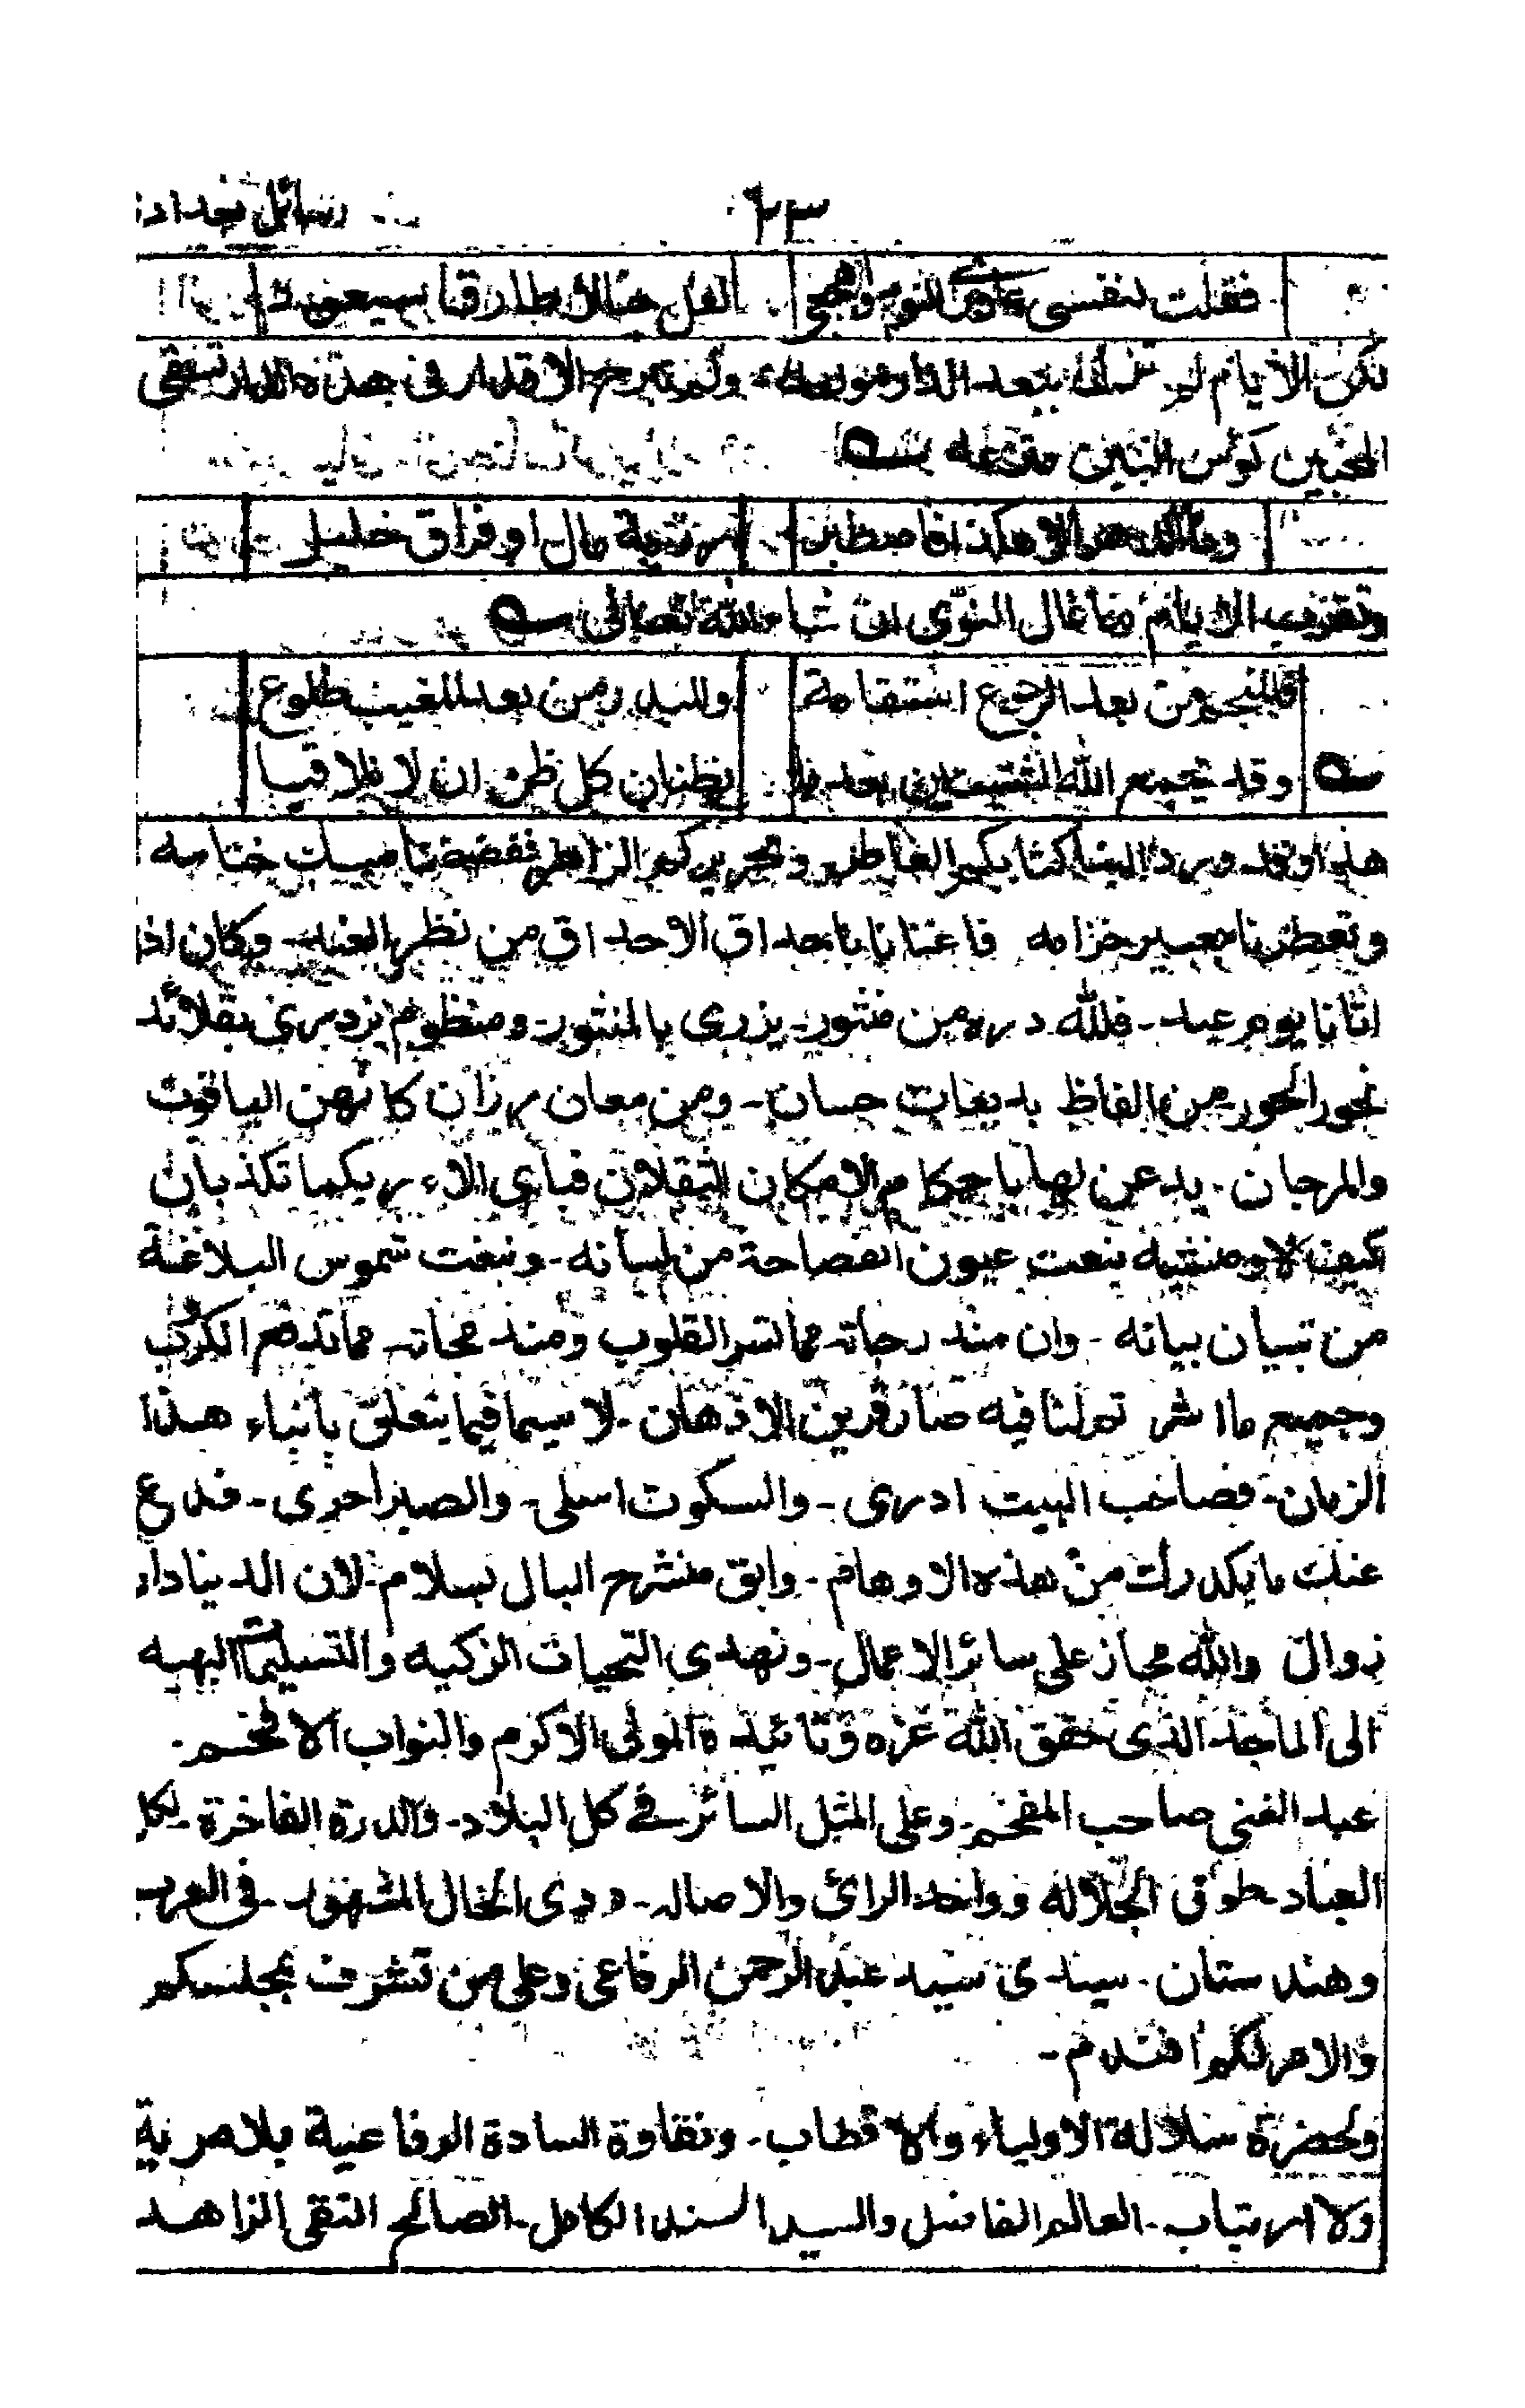 ٦٣ رسائل بغداد
فقلت لنفسى النوم واهجعى لعل خيالا طارقا سيعود
لكن الايام لم تزل ببعد الدار مولعه ولم تبرح الاقدار فى هذه الدار تسقى
المحبين كؤس البين مترعه
وما الدهر الا هكذا فاصطبر له رزية مال او فراق خليل
وتقرب الايام ما غال النوى ان شاء الله تعالى
فللنجم من بعد الرجوع استقامة وللبدر من بعد المغيب طلوع
وقد يجمع الله الشتيتين بعد ما يظنان كل ظن ان لا تلاقيا
هذا وقد ورد الينا كتابكم العاطر وتحريركم الزاهر ففضضنا مسك ختامه
وتعطرنا بعبير خزامه فاغنانا باحداق الاحداق من نظر الغيد وكان اذا
اتانا يوم عيد - فلله دره من منثور - يزرى بالمنثور - ومنظوم يزدرى بقلائد
نحور الحور من الفاظ بديعات حسان - ومن معان رزان كانهن الياقوت
والمرجان - يدعن لها باحكام الامكان الثقلان فباى الاء ربكما تكذبان
كيف لا ومنشيه نبعت عيون الفصاحة من لسانه - ونبغت شموس البلاغة
من تبيان بيانه - وان منذرجاته مما تسر القلوب ومند مجاته مما تدفع الكروب
وجميع ما اشر تم لنا فيه صار قرين الاذهان - لا سيما فيما يتعلق بانباء هذا
الزمان - فصاحب البيت ادرى - والسكوت اسلى - والصبر احرى - فدع
عنك ما يكدرك من هذه الاوهام - وابق منشرح البال بسلام - لان الدنيا دار
زوال والله مجاز على سائر الاعمال - ونهدى التحيات الزكيه والتسليمات البهيه
الى الماجد الذى حقق الله عزه وتائيده المولى الاكرم والنواب الافخم -
عبد الغنى صاحب المفخم - وعلى المثل السائر فى كل البلاد - والدرة الفاخرة - لكل
العباد - طوق الجلاله وواحد الرائ والاصاله - وذى الخال المشهور - فى العرب
وهندستان - سيدى سيد عبد الرحمن الرفاعى وعلى من تشرف بمجلسكم
والامر لكم افندم -
ولحضرة سلالة الاولياء والاقطاب - ونقاوة السادة الرفاعية بلا مرية
ولا ارتياب - العالم الفاضل والسيد السند الكامل - الصالح التقى الزاهد